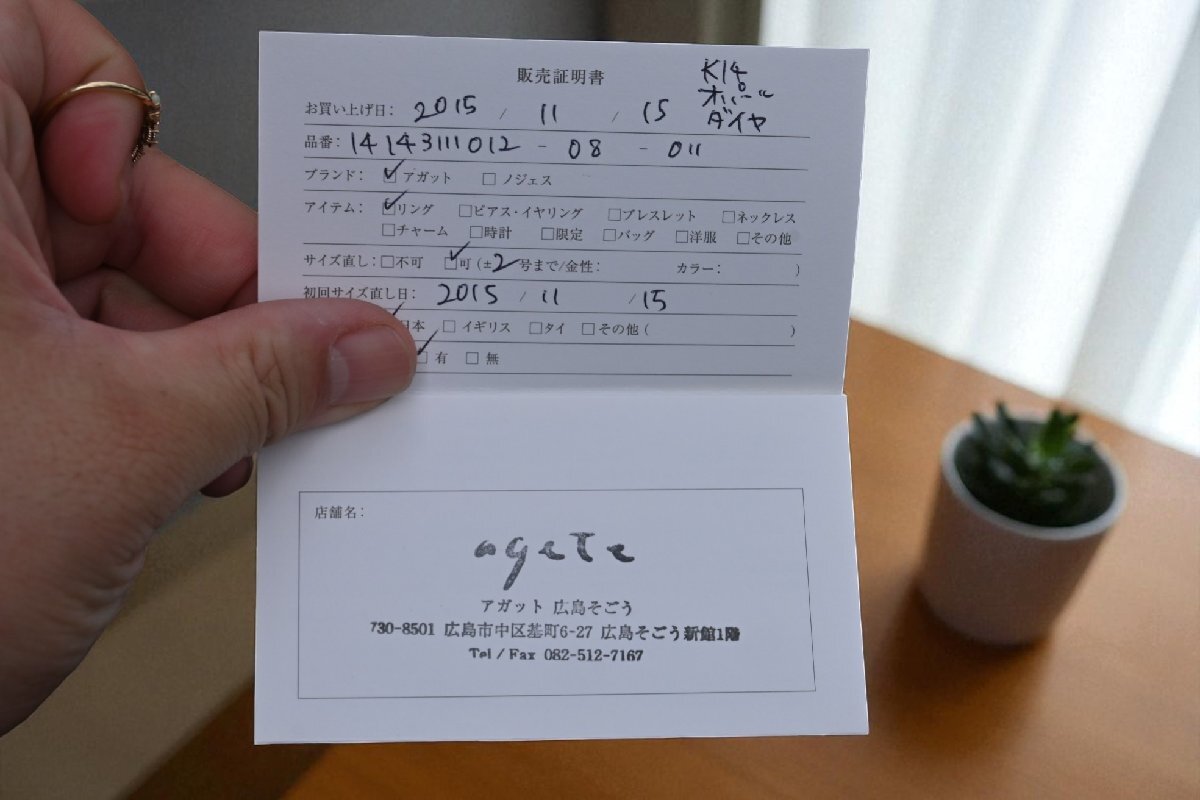 販売証明書
K14
オパール
ダイヤ
お買い上げ日: 2015 / 11 / 15
品番: 14143111012 - 08 - 011
ブランド: ☑アガット □ノジェス
アイテム: ☑リング □ピアス・イヤリング □ブレスレット □ネックレス
□チャーム □時計 □限定 □バッグ □洋服 □その他
サイズ直し: □不可 ☑可 (±2号まで/金性: カラー: )
初回サイズ直し日: 2015 / 11 / 15
日本 □イギリス □タイ □その他 ( )
☑有 □無
店舗名:
agete
アガット 広島そごう
730-8501 広島市中区基町6-27 広島そごう新館1階
Tel / Fax 082-512-7167